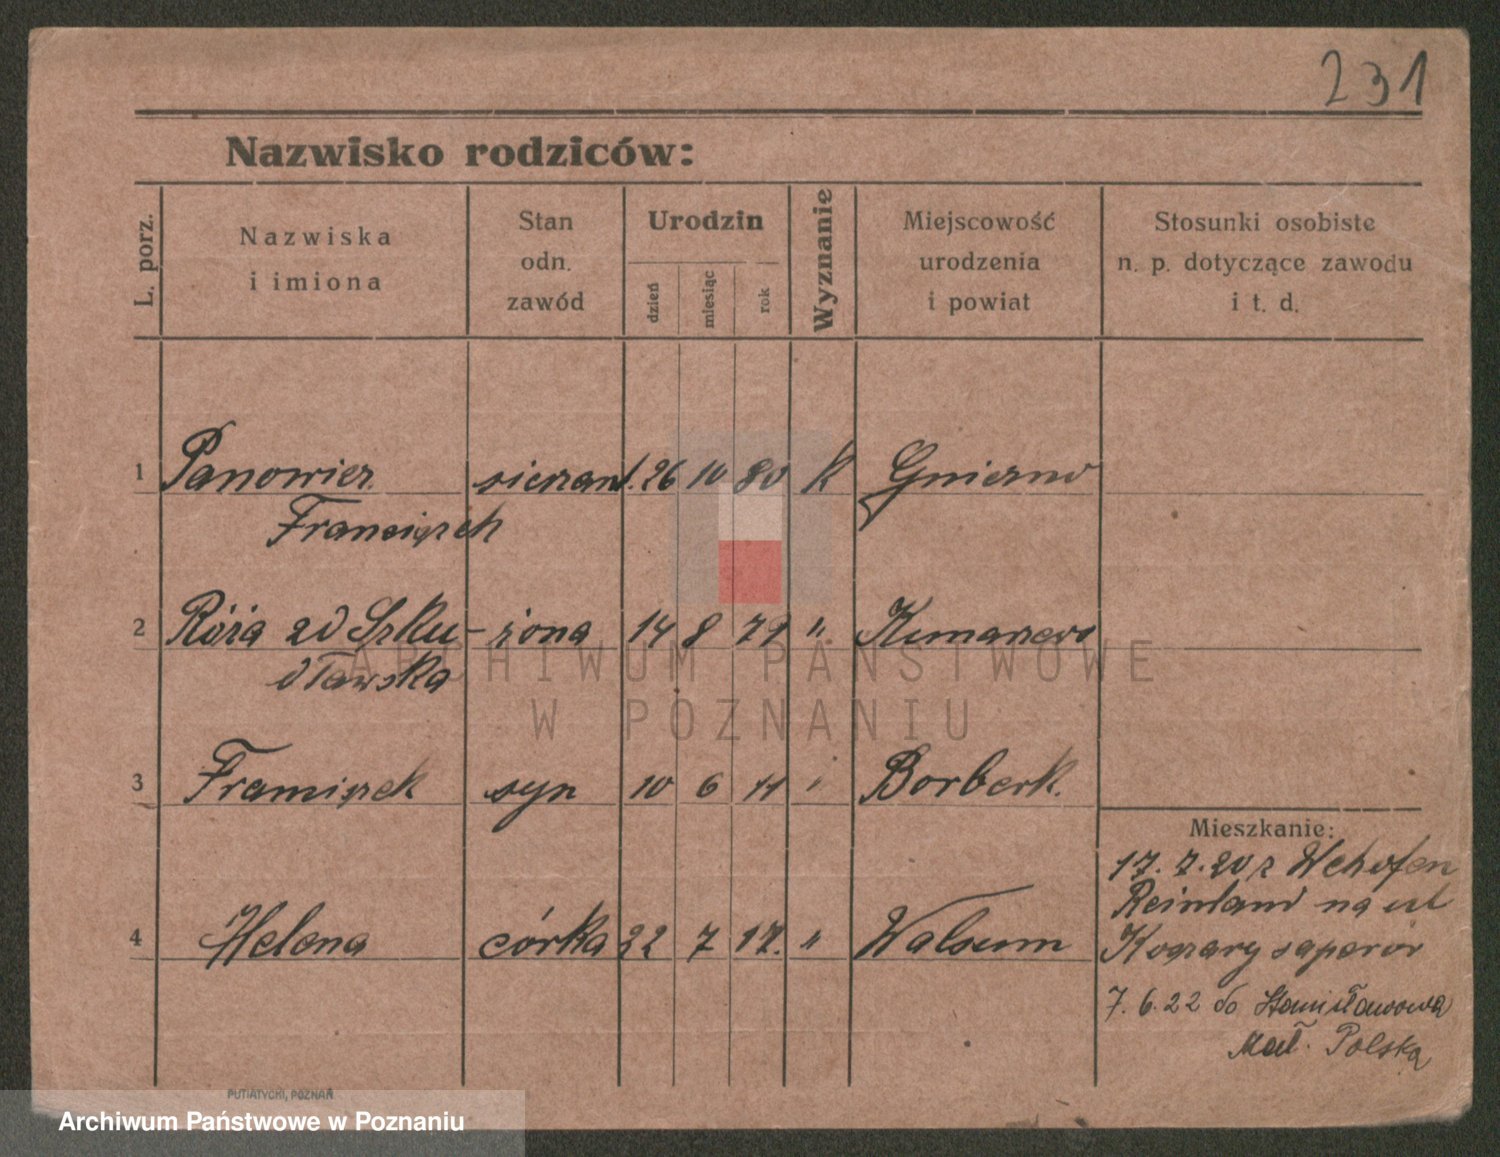 231
Nazwisko rodziców:
L. porz.
Nazwiska
i imiona
Stan
odn.
zawód
Urodzin
dzień
miesiąc
rok
Wyznanie
Miejscowość
urodzenia
i powiat
Stosunki osobiste
n. p. dotyczące zawodu
i t. d.
1 Panowicz sierżant. 26 10 80 k Gniezno
Franciszek
2 Róża zd Szku- żona 14 8 79 "
dławska
3 Franciszek syn 10 6 11 " Borbeck.
4 Helena córka 22 7 17. " Walsum
Mieszkanie:
17. 7. 20 z Wehofen
Reinland na ul
Koszary saperów
7. 6. 22 do Stanisławowa
Mał. Polska
ARCHIWUM PAŃSTWOWE
W POZNANIU
PUTIATYCKI, POZNAŃ
Archiwum Państwowe w Poznaniu